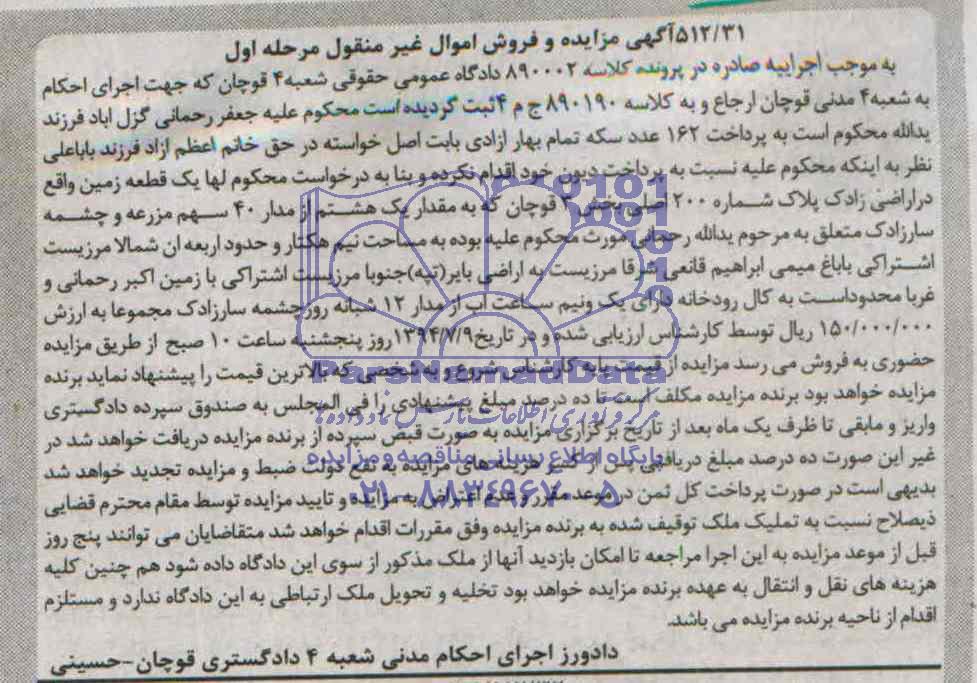 ۵۱۲/۳۱آگهی مزایده و فروش اموال غیر منقول مرحله اول
به موجب اجراییه صادره در پرونده کلاسه ۸۹۰۰۰۲ دادگاه عمومی حقوقی شعبه۴ قوچان که جهت اجرای احکام
به شعبه۴ مدنی قوچان ارجاع و به کلاسه ۸۹۰۱۹۰ ج م ۴ثبت گردیده است محکوم علیه جعفر رحمانی گزل اباد فرزند
یدالله محکوم است به پرداخت ۱۶۲ عدد سکه تمام بهار ازادی بابت اصل خواسته در حق خانم اعظم ازاد فرزند باباعلی
نظر به اینکه محکوم علیه نسبت به پرداخت دیون خود اقدام نکرده و بنا به درخواست محکوم لها یک قطعه زمین واقع
دراراضی زادک پلاک شماره ۲۰۰ اصلی بخش ۳ قوچان که به مقدار یک هشتم از مدار ۴۰ سهم مزرعه و چشمه
سارزادک متعلق به مرحوم یدالله رحمانی مورث محکوم علیه بوده به مساحت نیم هکتار و حدود اربعه ان شمالا مرزیست
اشتراکی باباغ میمی ابراهیم قانعی شرقا مرزیست به اراضی بایر(تپه)جنوبا مرزیست اشتراکی با زمین اکبر رحمانی و
غربا محدوداست به کال رودخانه دارای یک ونیم ساعت آب از مدار ۱۲ شبانه روزچشمه سارزادک مجموعا به ارزش
۱۵۰/۰۰۰/۰۰۰ ریال توسط کارشناس ارزیابی شده و در تاریخ۱۳۹۴/۷/۹روز پنجشنبه ساعت ۱۰ صبح از طریق مزایده
حضوری به فروش می رسد مزایده از قیمت پایه کارشناس شروع و به شخصی که بالاترین قیمت را پیشنهاد نماید برنده
مزایده خواهد بود برنده مزایده مکلف است تا ده درصد مبلغ پیشنهادی را فی المجلس به صندوق سپرده دادگستری
واریز و مابقی تا ظرف یک ماه بعد از تاریخ برگزاری مزایده به صورت قبض سپرده از برنده مزایده دریافت خواهد شد در
غیر این صورت ده درصد مبلغ دریافتی پس از کسر هزینه های مزایده به نفع دولت ضبط و مزایده تجدید خواهد شد
بدیهی است در صورت پرداخت کل ثمن در موعد مقرر و عدم اعتراض به مزایده و تایید مزایده توسط مقام محترم قضایی
ذیصلاح نسبت به تملیک ملک توقیف شده به برنده مزایده وفق مقررات اقدام خواهد شد متقاضایان می توانند پنج روز
قبل از موعد مزایده به این اجرا مراجعه تا امکان بازدید آنها از ملک مذکور از سوی این دادگاه داده شود هم چنین کلیه
هزینه های نقل و انتقال به عهده برنده مزایده خواهد بود تخلیه و تحویل ملک ارتباطی به این دادگاه ندارد و مستلزم
اقدام از ناحیه برنده مزایده می باشد.
دادورز اجرای احکام مدنی شعبه ۴ دادگستری قوچان-حسینی
ParsNamadData
مرکز فرآوری اطلاعات پارس نماد داده ها
پایگاه اطلاع رسانی مناقصه و مزایده
۰۲۱-۸۸۳۴۹۶۷۰-۵